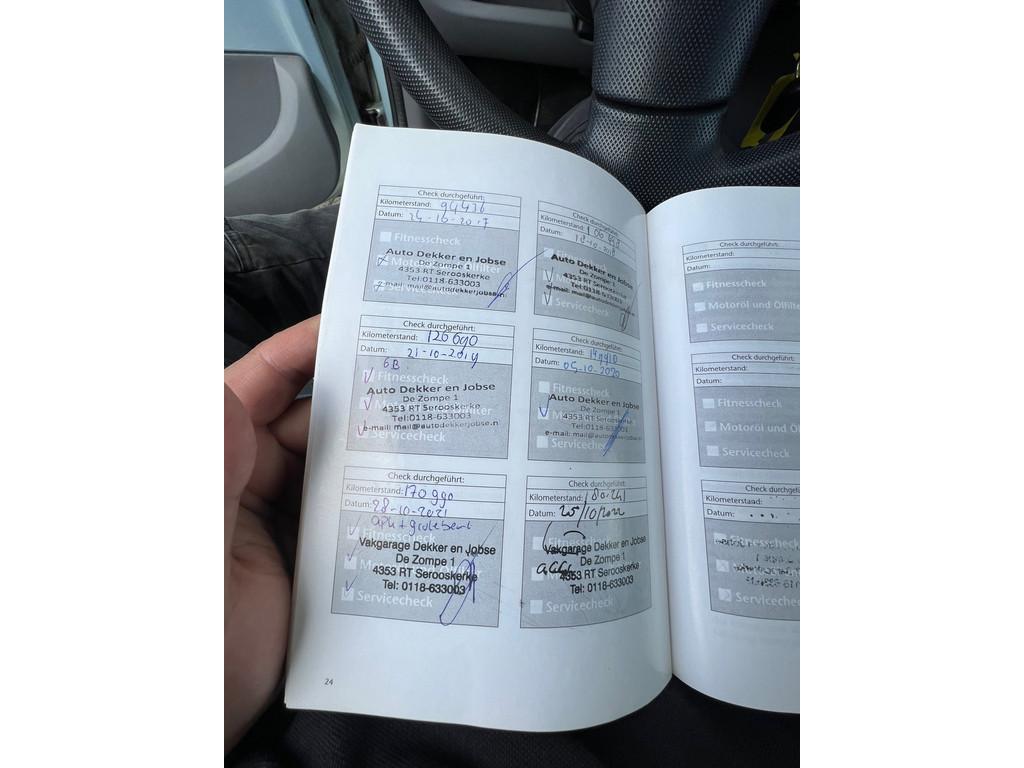 Check durchgeführt:
Kilometerstand: 94436
Datum: 24-10-2017
Fitnesscheck
Auto Dekker en Jobse
De Zompe 1
4353 RT Serooskerke
Tel:0118-633003
e-mail: mail@autodekkerjobse.n
Check durchgeführt:
Kilometerstand:
Datum: 18-10-2018
Auto Dekker en Jobse
De Zompe 1
4353 RT Serooskerke
Tel:0118-633003
e-mail: mail@autodekkerjobse.n
Servicecheck
Check durchgeführt:
Kilometerstand: 126690
Datum: 21-10-2019
6B
Fitnesscheck
Auto Dekker en Jobse
De Zompe 1
4353 RT Serooskerke
Tel:0118-633003
e-mail: mail@autodekkerjobse.n
Servicecheck
Check durchgeführt:
Kilometerstand:
Datum: 05-10-2020
Fitnesscheck
Auto Dekker en Jobse
De Zompe 1
4353 RT Serooskerke
Tel:0118-633003
Servicecheck
Check durchgeführt:
Kilometerstand: 170990
Datum: 28-10-2021
apk + grote beurt
Fitnesscheck
Vakgarage Dekker en Jobse
De Zompe 1
4353 RT Serooskerke
Tel: 0118-633003
Servicecheck
Check durchgeführt:
Kilometerstand: 180.241
Datum: 25/10/2022
Fitnesscheck
Vakgarage Dekker en Jobse
De Zompe 1
4353 RT Serooskerke
Tel: 0118-633003
Servicecheck
24
Check durchgeführt:
Kilometerstand:
Datum:
Fitnesscheck
Motoröl und Ölfilte
Servicecheck
Check durchgeführt:
Kilometerstand:
Datum:
Fitnesscheck
Motoröl und Öl
Servicecheck
Check durchgefü
Kilometerstand:
Datum:
Servicecheck